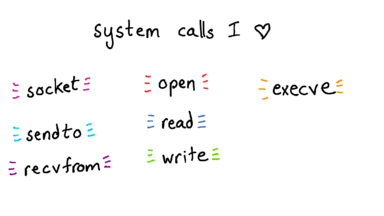 system calls I ♡
socket
sendto
recvfrom
open
read
write
execve